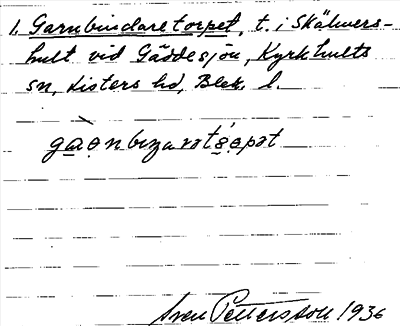 1. Garnbindaretorpet, t. i Skälmers-
hult vid Gäddesjön, Kyrkhults
sn, Listers hd, Blek. l.
Sven Pettersson 1936